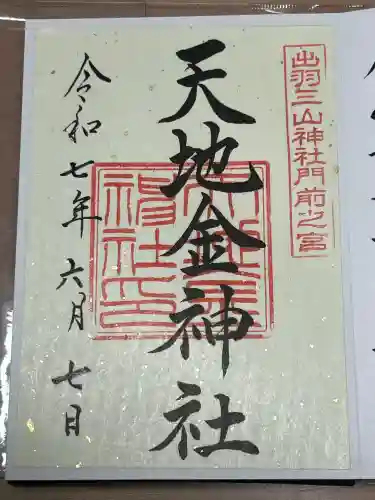 出羽三山神社門前之宮
天地金神社
令和七年六月七日